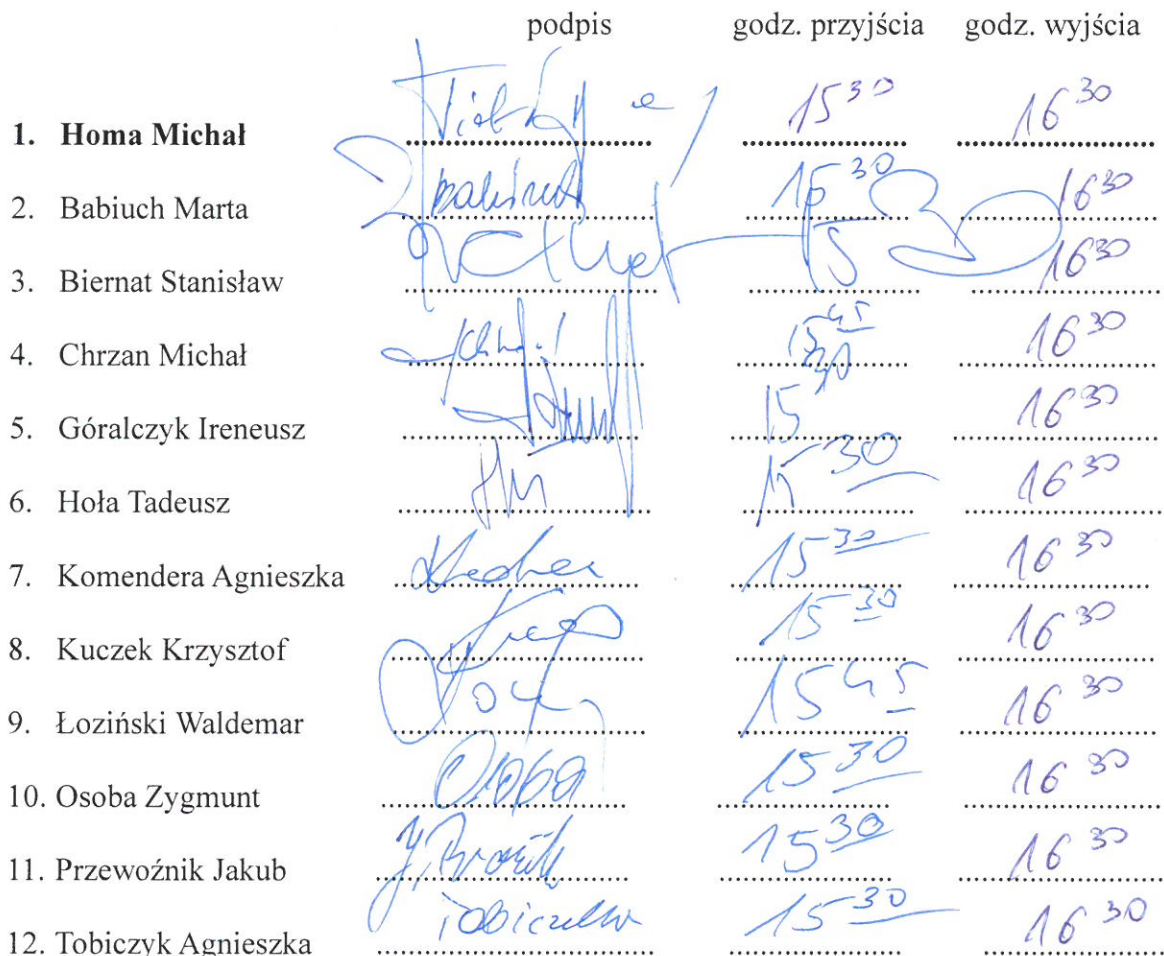 podpis godz. przyjścia godz. wyjścia
1. Homa Michał 15 30 16 30
2. Babiuch Marta Babiuch 15 30 16 30
3. Biernat Stanisław 15 30 16 30
4. Chrzan Michał 15 45 16 30
5. Góralczyk Ireneusz 15 30 16 30
6. Hoła Tadeusz 15 30 16 30
7. Komendera Agnieszka 15 30 16 30
8. Kuczek Krzysztof 15 30 16 30
9. Łoziński Waldemar 15 45 16 30
10. Osoba Zygmunt Osoba 15 30 16 30
11. Przewoźnik Jakub 15 30 16 30
12. Tobiczyk Agnieszka 15 30 16 30